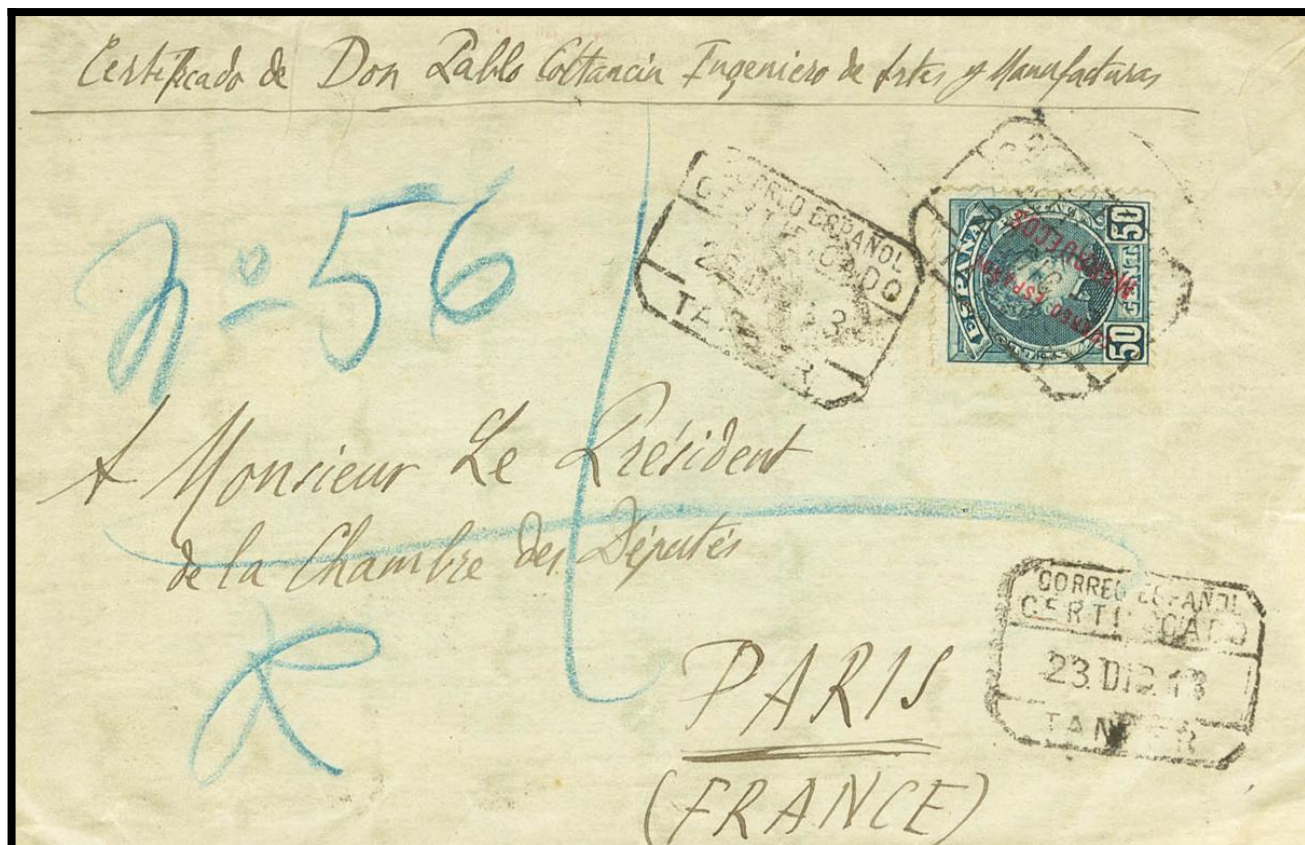 Certificado de Don Pablo Cottancin Ingeniero de Artes y Manufacturas
Nº 56
CORREO ESPAÑOL
CERTIFICADO
TANGER
ESPAÑA
50
CENT
50
CORREO ESPAÑOL
MARRUECOS
A Monsieur Le Président
de la Chambre des Députés
R
PARIS
(FRANCE)
CORREO ESPAÑOL
CERTIFICADO
23 DIC 13
TANGER